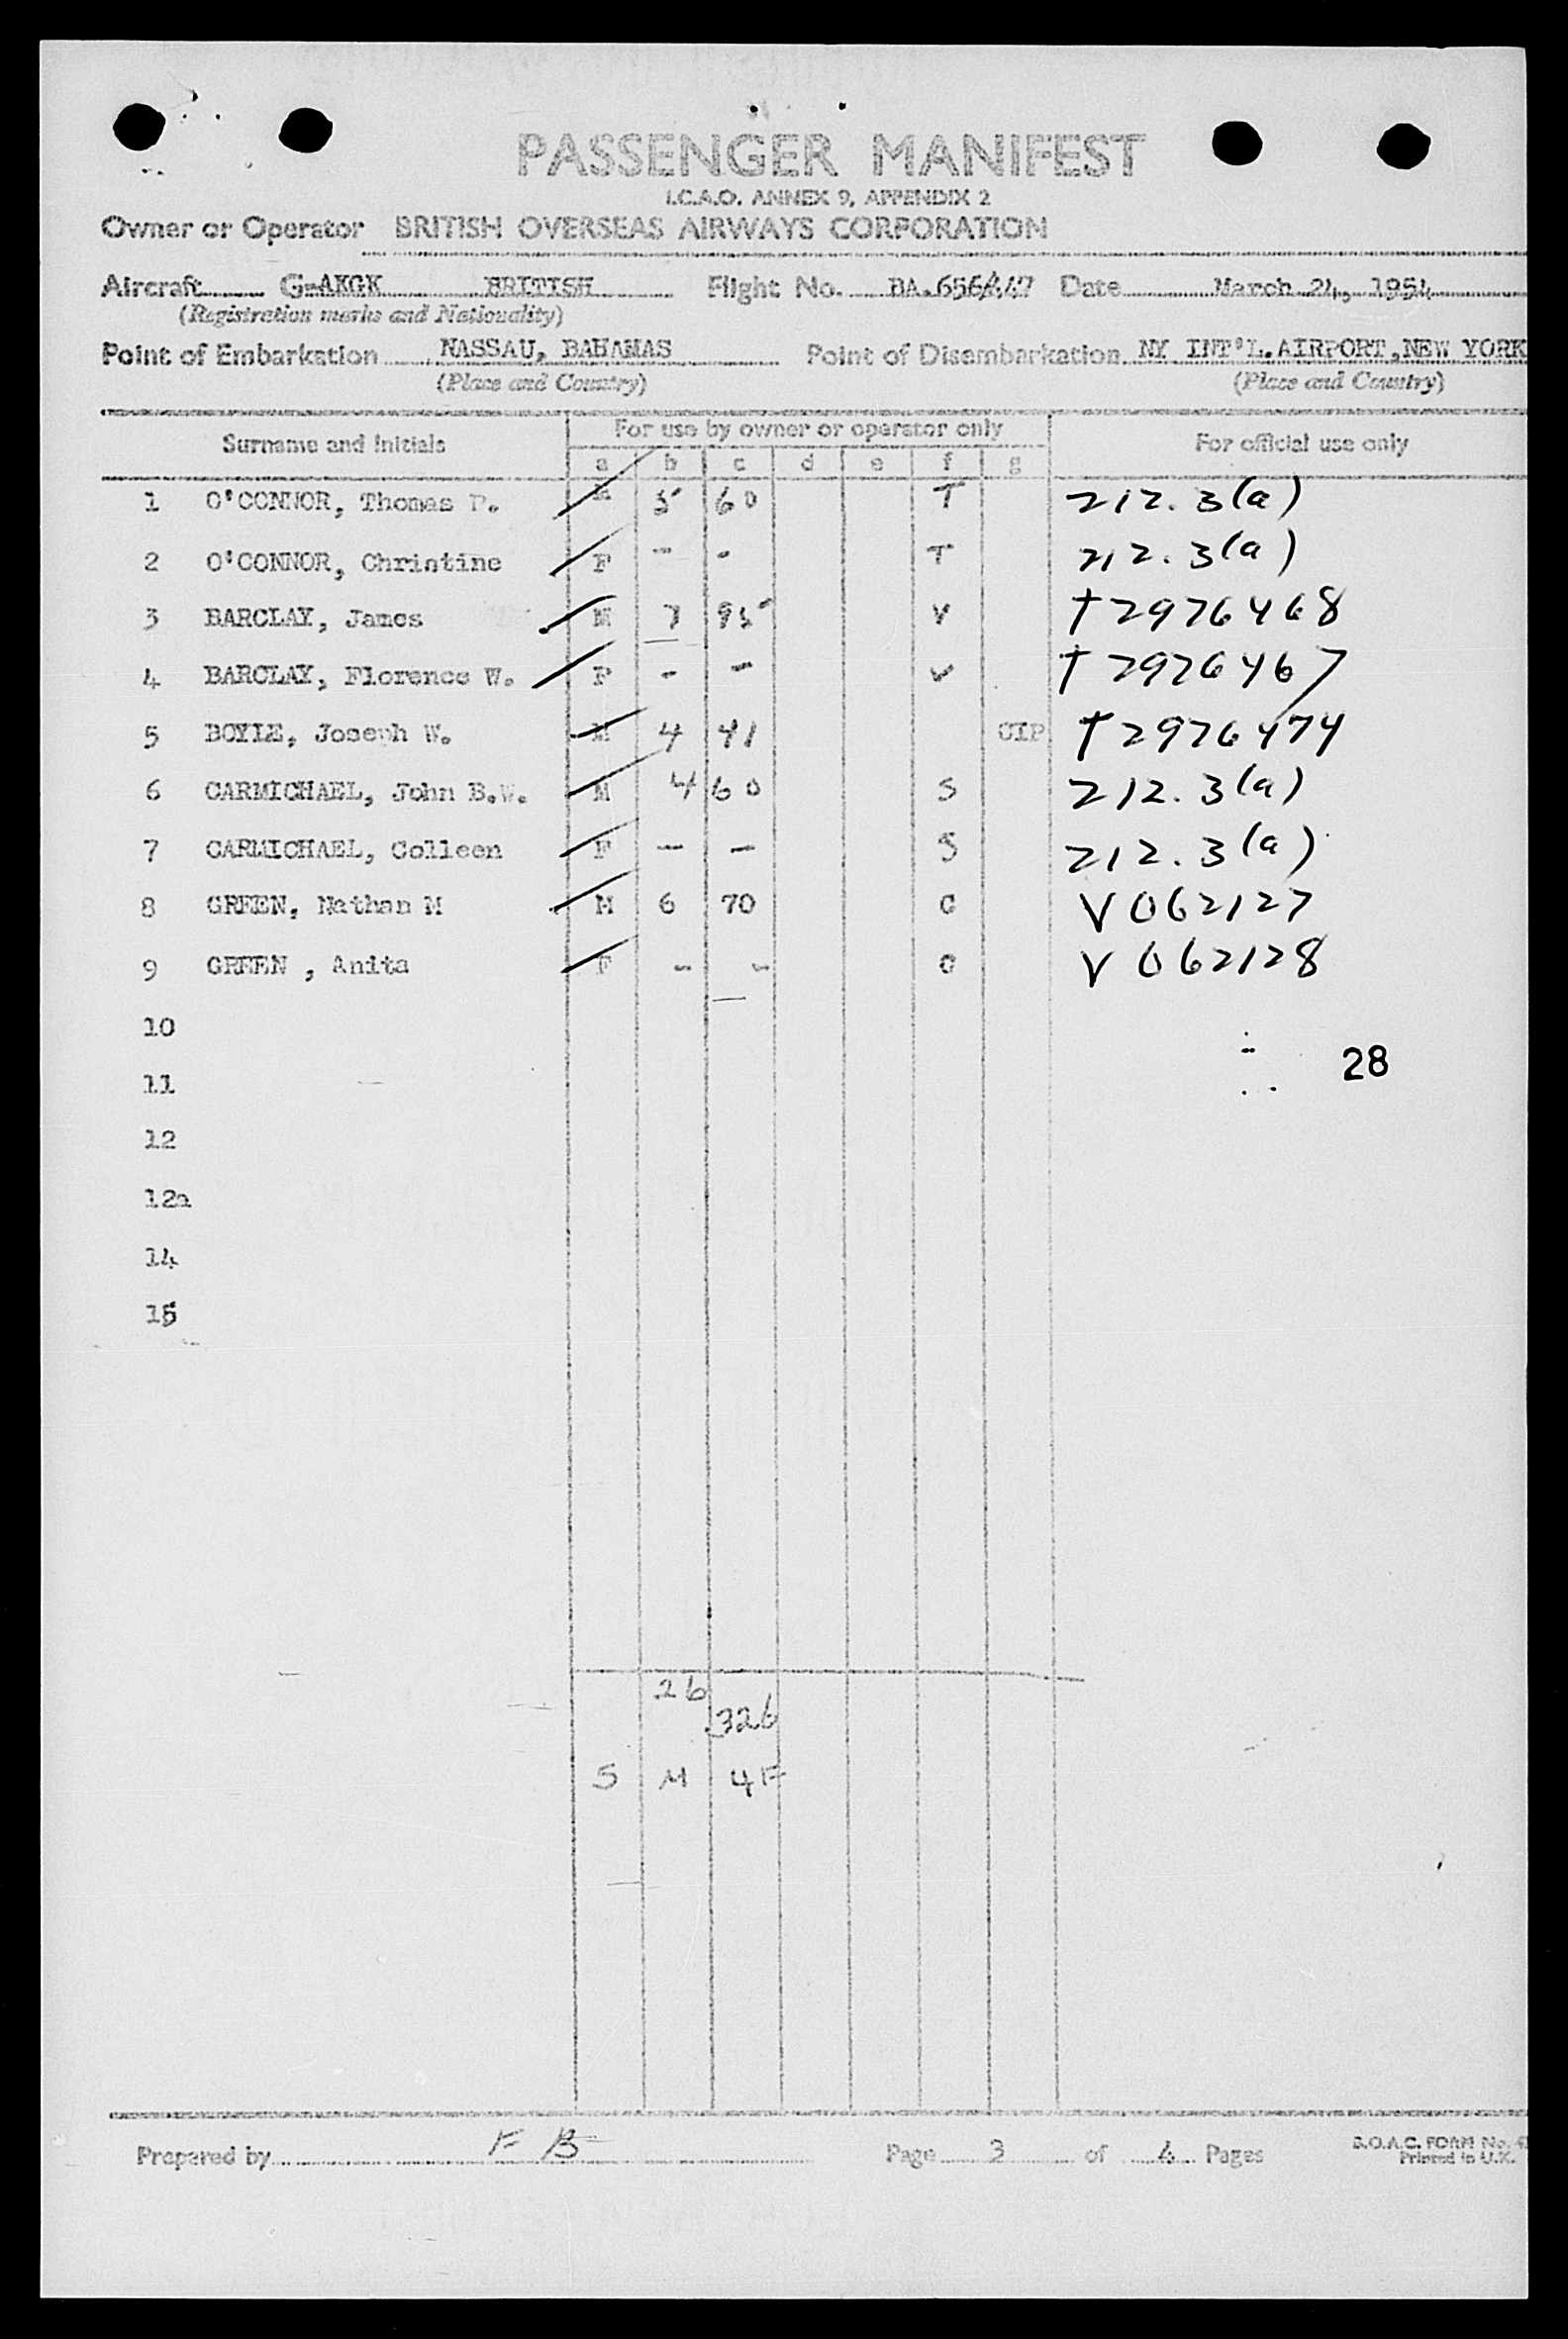 PASSENGER MANIFEST
I.C.A.O. ANNEX 9, APPENDIX 2
Owner or Operator BRITISH OVERSEAS AIRWAYS CORPORATION
Aircraft G-AKGK BRITISH Flight No. BA.656/447 Date March 24, 1954
(Registration marks and Nationality)
Point of Embarkation NASSAU, BAHAMAS Point of Disembarkation NY INT'L.AIRPORT,NEW YORK
(Place and Country) (Place and Country)
Surname and Initials For use by owner or operator only For official use only
a b c d e f g
1 O'CONNOR, Thomas P. 5 60 T 212.3(a)
2 O'CONNOR, Christine F - - T 212.3(a)
3 BARCLAY, James M 7 95 V T2976468
4 BARCLAY, Florence W. F - - V T2976467
5 BOYLE, Joseph W. M 4 41 CIP T2976474
6 CARMICHAEL, John B.W. M 4 60 S 212.3(a)
7 CARMICHAEL, Colleen F - - S 212.3(a)
8 GREEN, Nathan M M 6 70 C V062127
9 GREEN , Anita F - - C V062128
10
28
11
12
12a
14
15
26
326
5 M 4F
Prepared by F B Page 3 of 4 Pages
B.O.A.C. FORM No.
Printed in U.K.